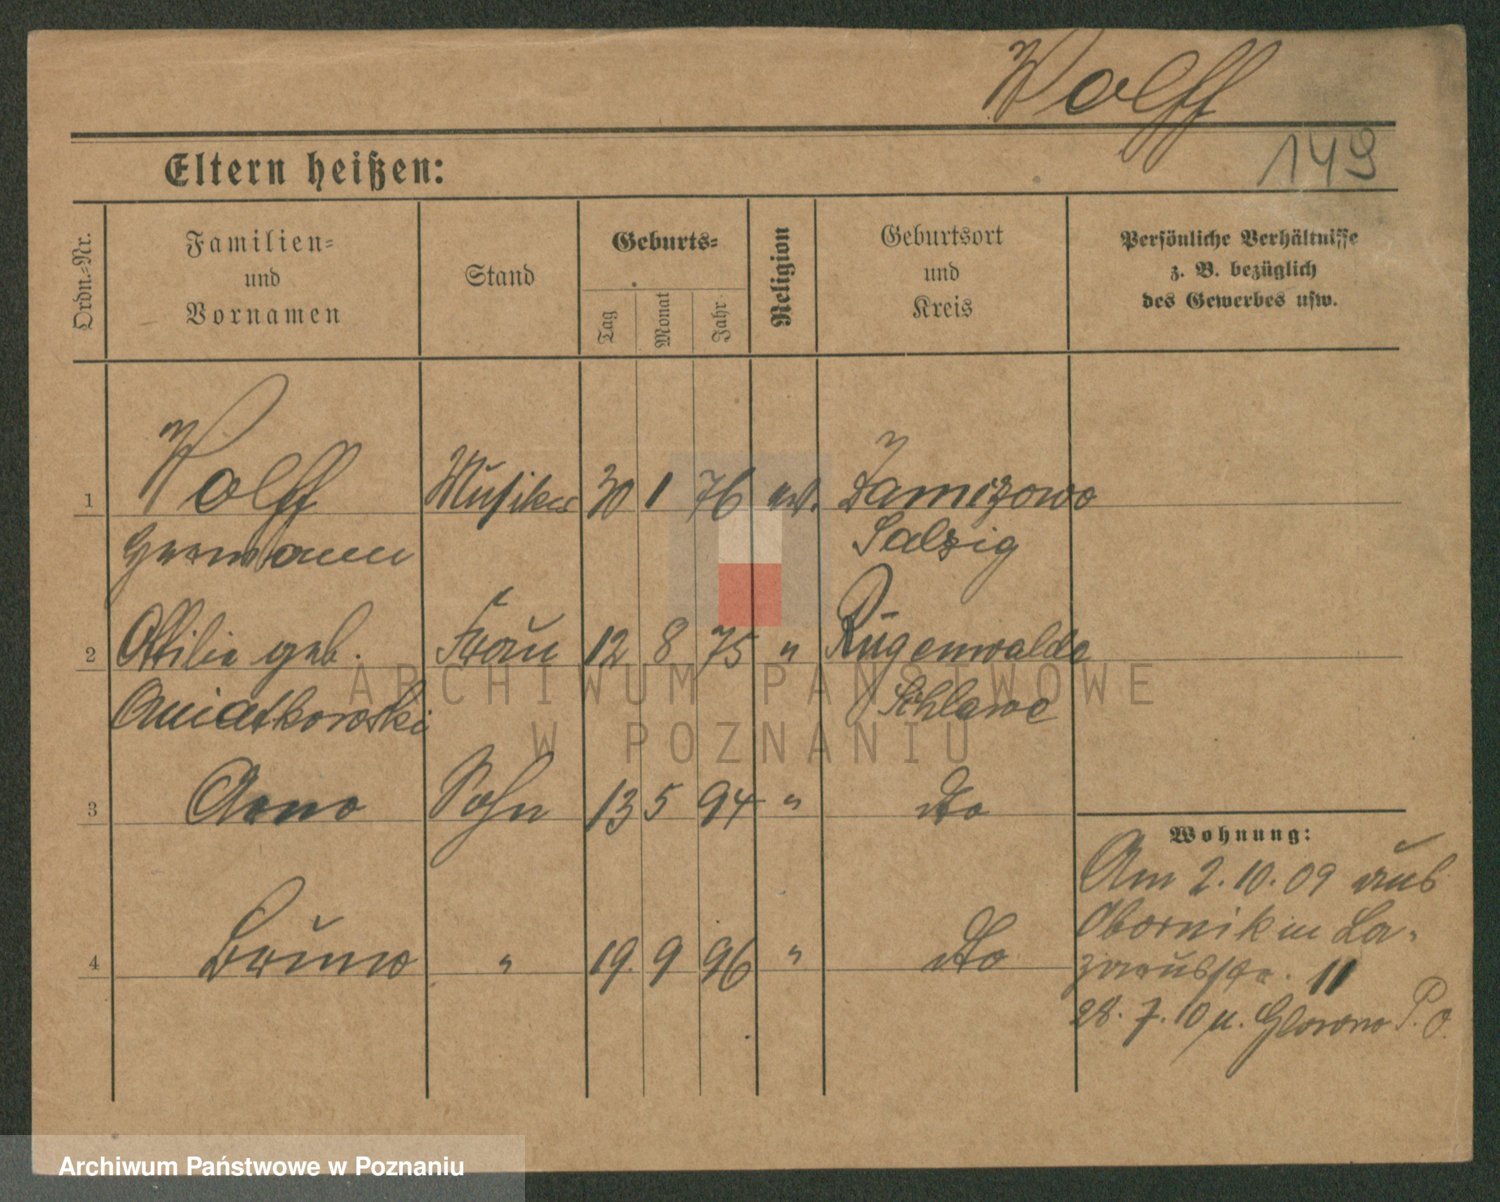 Wolff
149
Eltern heißen:
Ordn.-Nr.
Familien-
und
Vornamen
Stand
Geburts-
Tag
Monat
Jahr
Religion
Geburtsort
und
Kreis
Persönliche Verhältnisse
z. B. bezüglich
des Gewerbes usw.
1 Wolff Musiker 30 1 76 ev.
Hermann
2 Ottilie geb. Frau 12 8 75 " Rügenwalde
Schlawe
3 Arno Sohn 13 5 94 " dto
4 Bruno " 19. 9 96 " dto
Wohnung:
Am 2.10.09 aus
Obornik in La-
zarusstr. 11
28. 7. 10 n. P. O.
ARCHIWUM PAŃSTWOWE
W POZNANIU
Archiwum Państwowe w Poznaniu